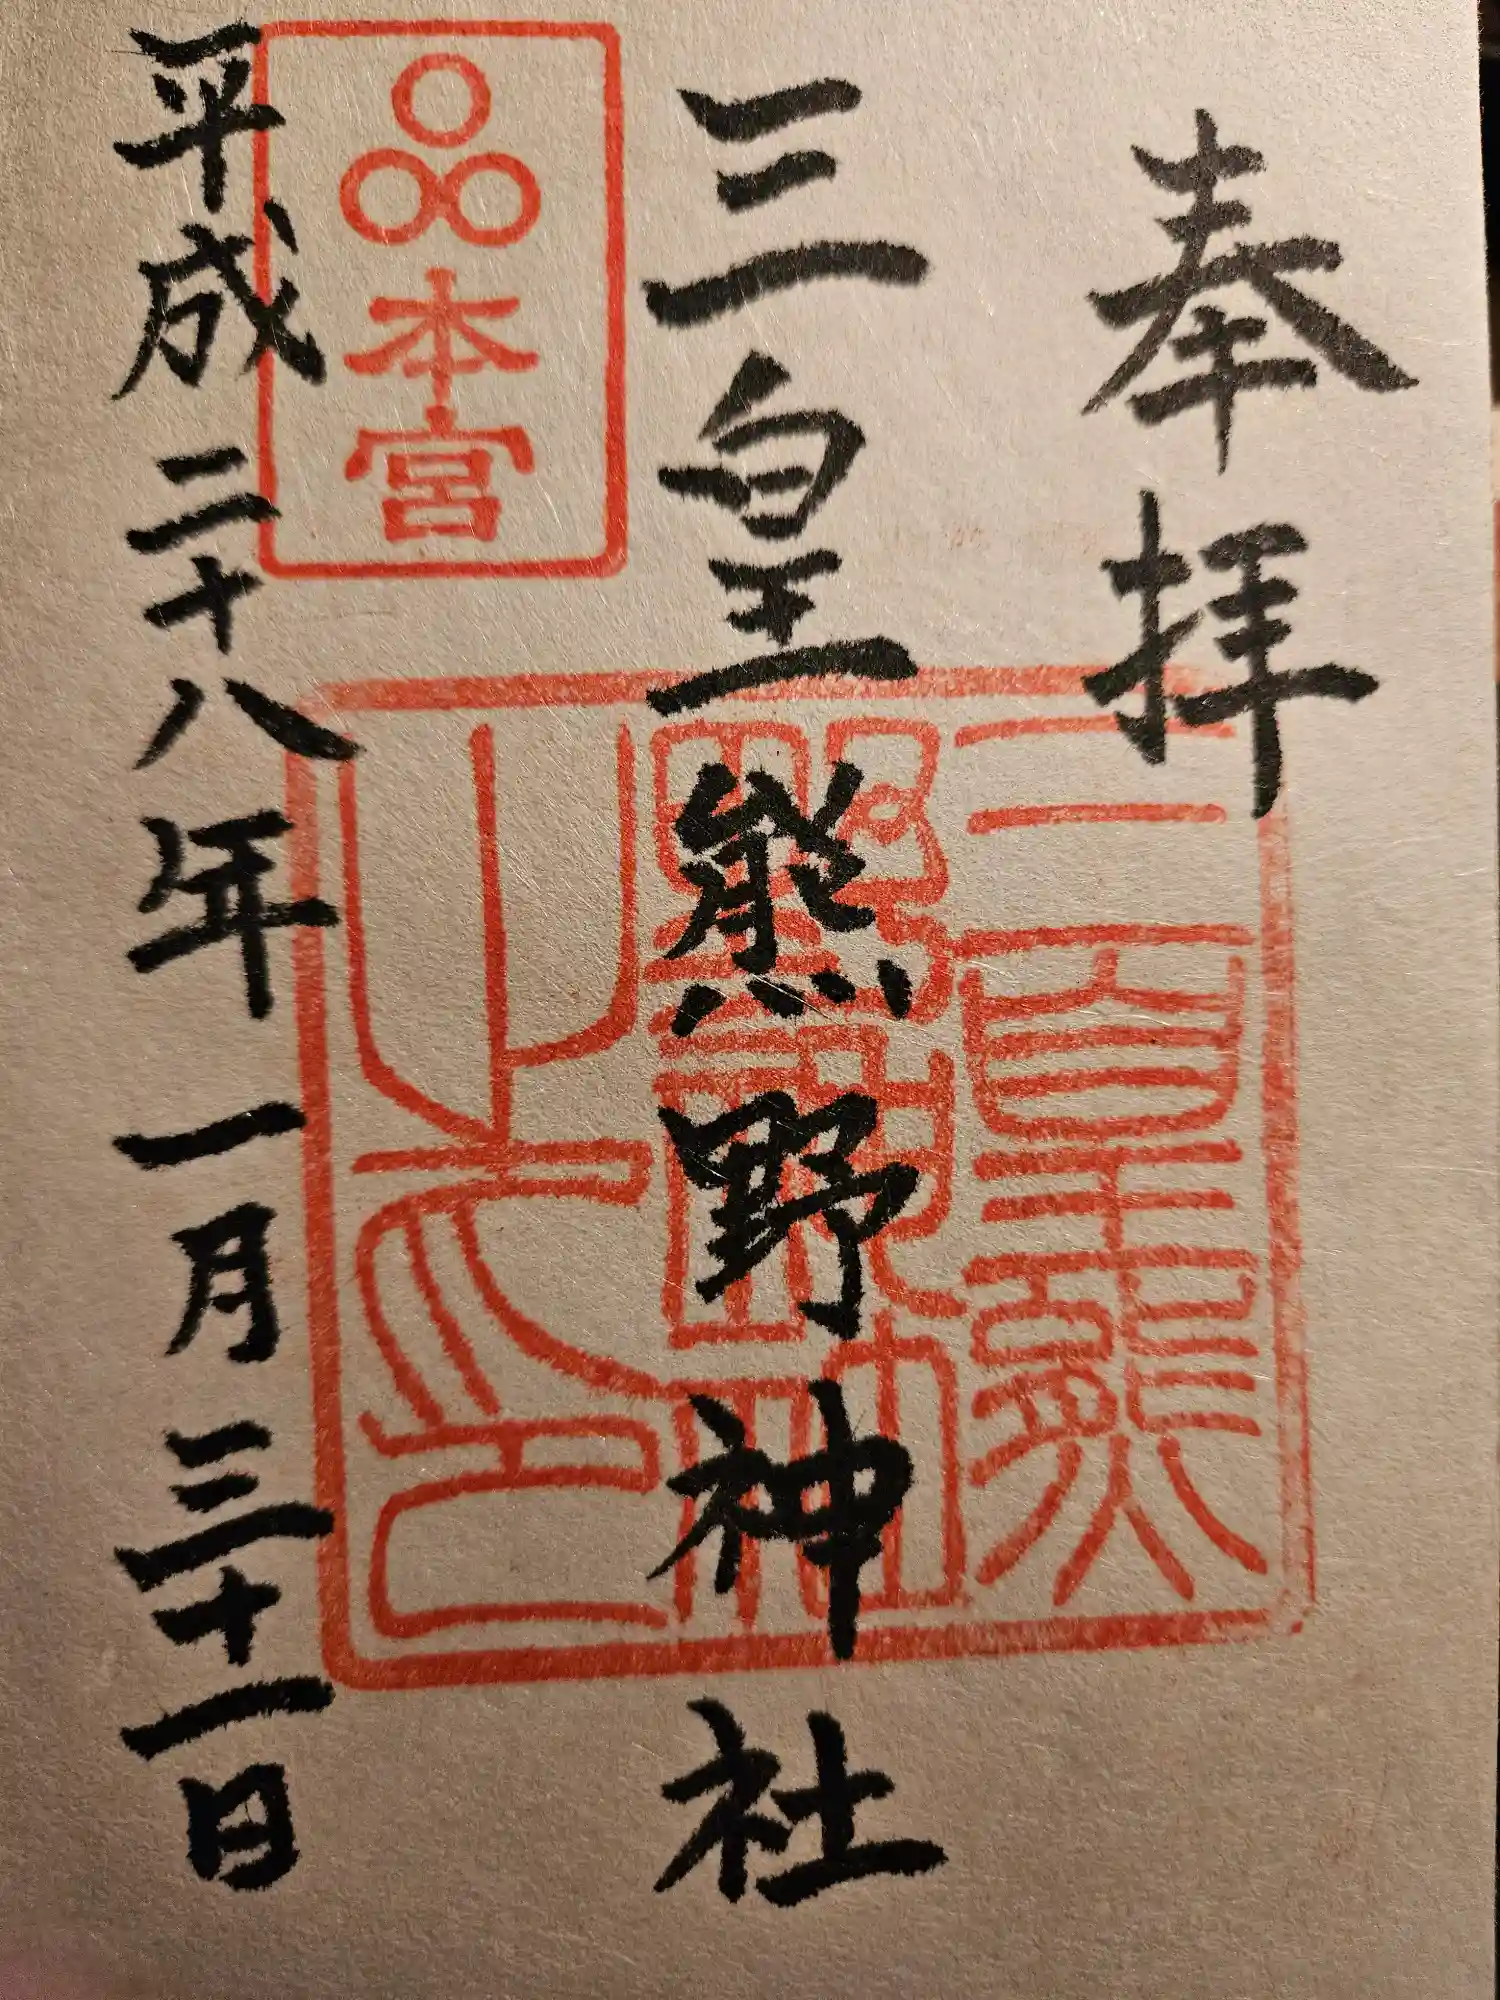 奉拝
三皇熊野神社
本宮
三皇熊野神社之印
平成二十八年一月三十一日